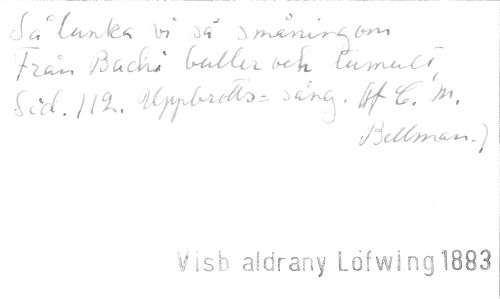 Så lunka vi så småningom
Från Bachi buller och tumult,
Sid. 112. Uppbrotts= sång. (Af C. M.
Bellman.)
Visb aldrany Löfwing 1883